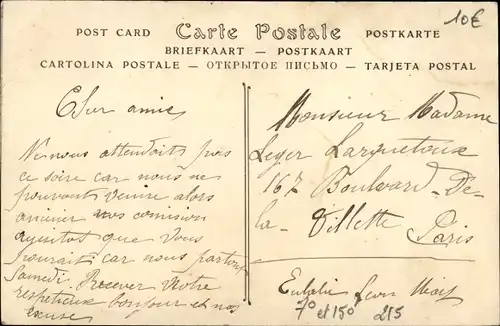 10€
POST CARD Carte Postale POSTKARTE
BRIEFKAART — POSTKAART
CARTOLINA POSTALE — ОТКРЫТОЕ ПИСЬМО — TARJETA POSTAL
Cher amie
Ne nous attendait pas
ce soire car nous ne
pouvont venire alors
nos comision
que Vous
pourait car nous partont
Samedi. Recever Notre
respetieux bonjour et nos
excuse
Monsieur Madame
Leger Larquetoux
167 Boulvard-De-
la-Villette
Paris
70 et 150 215